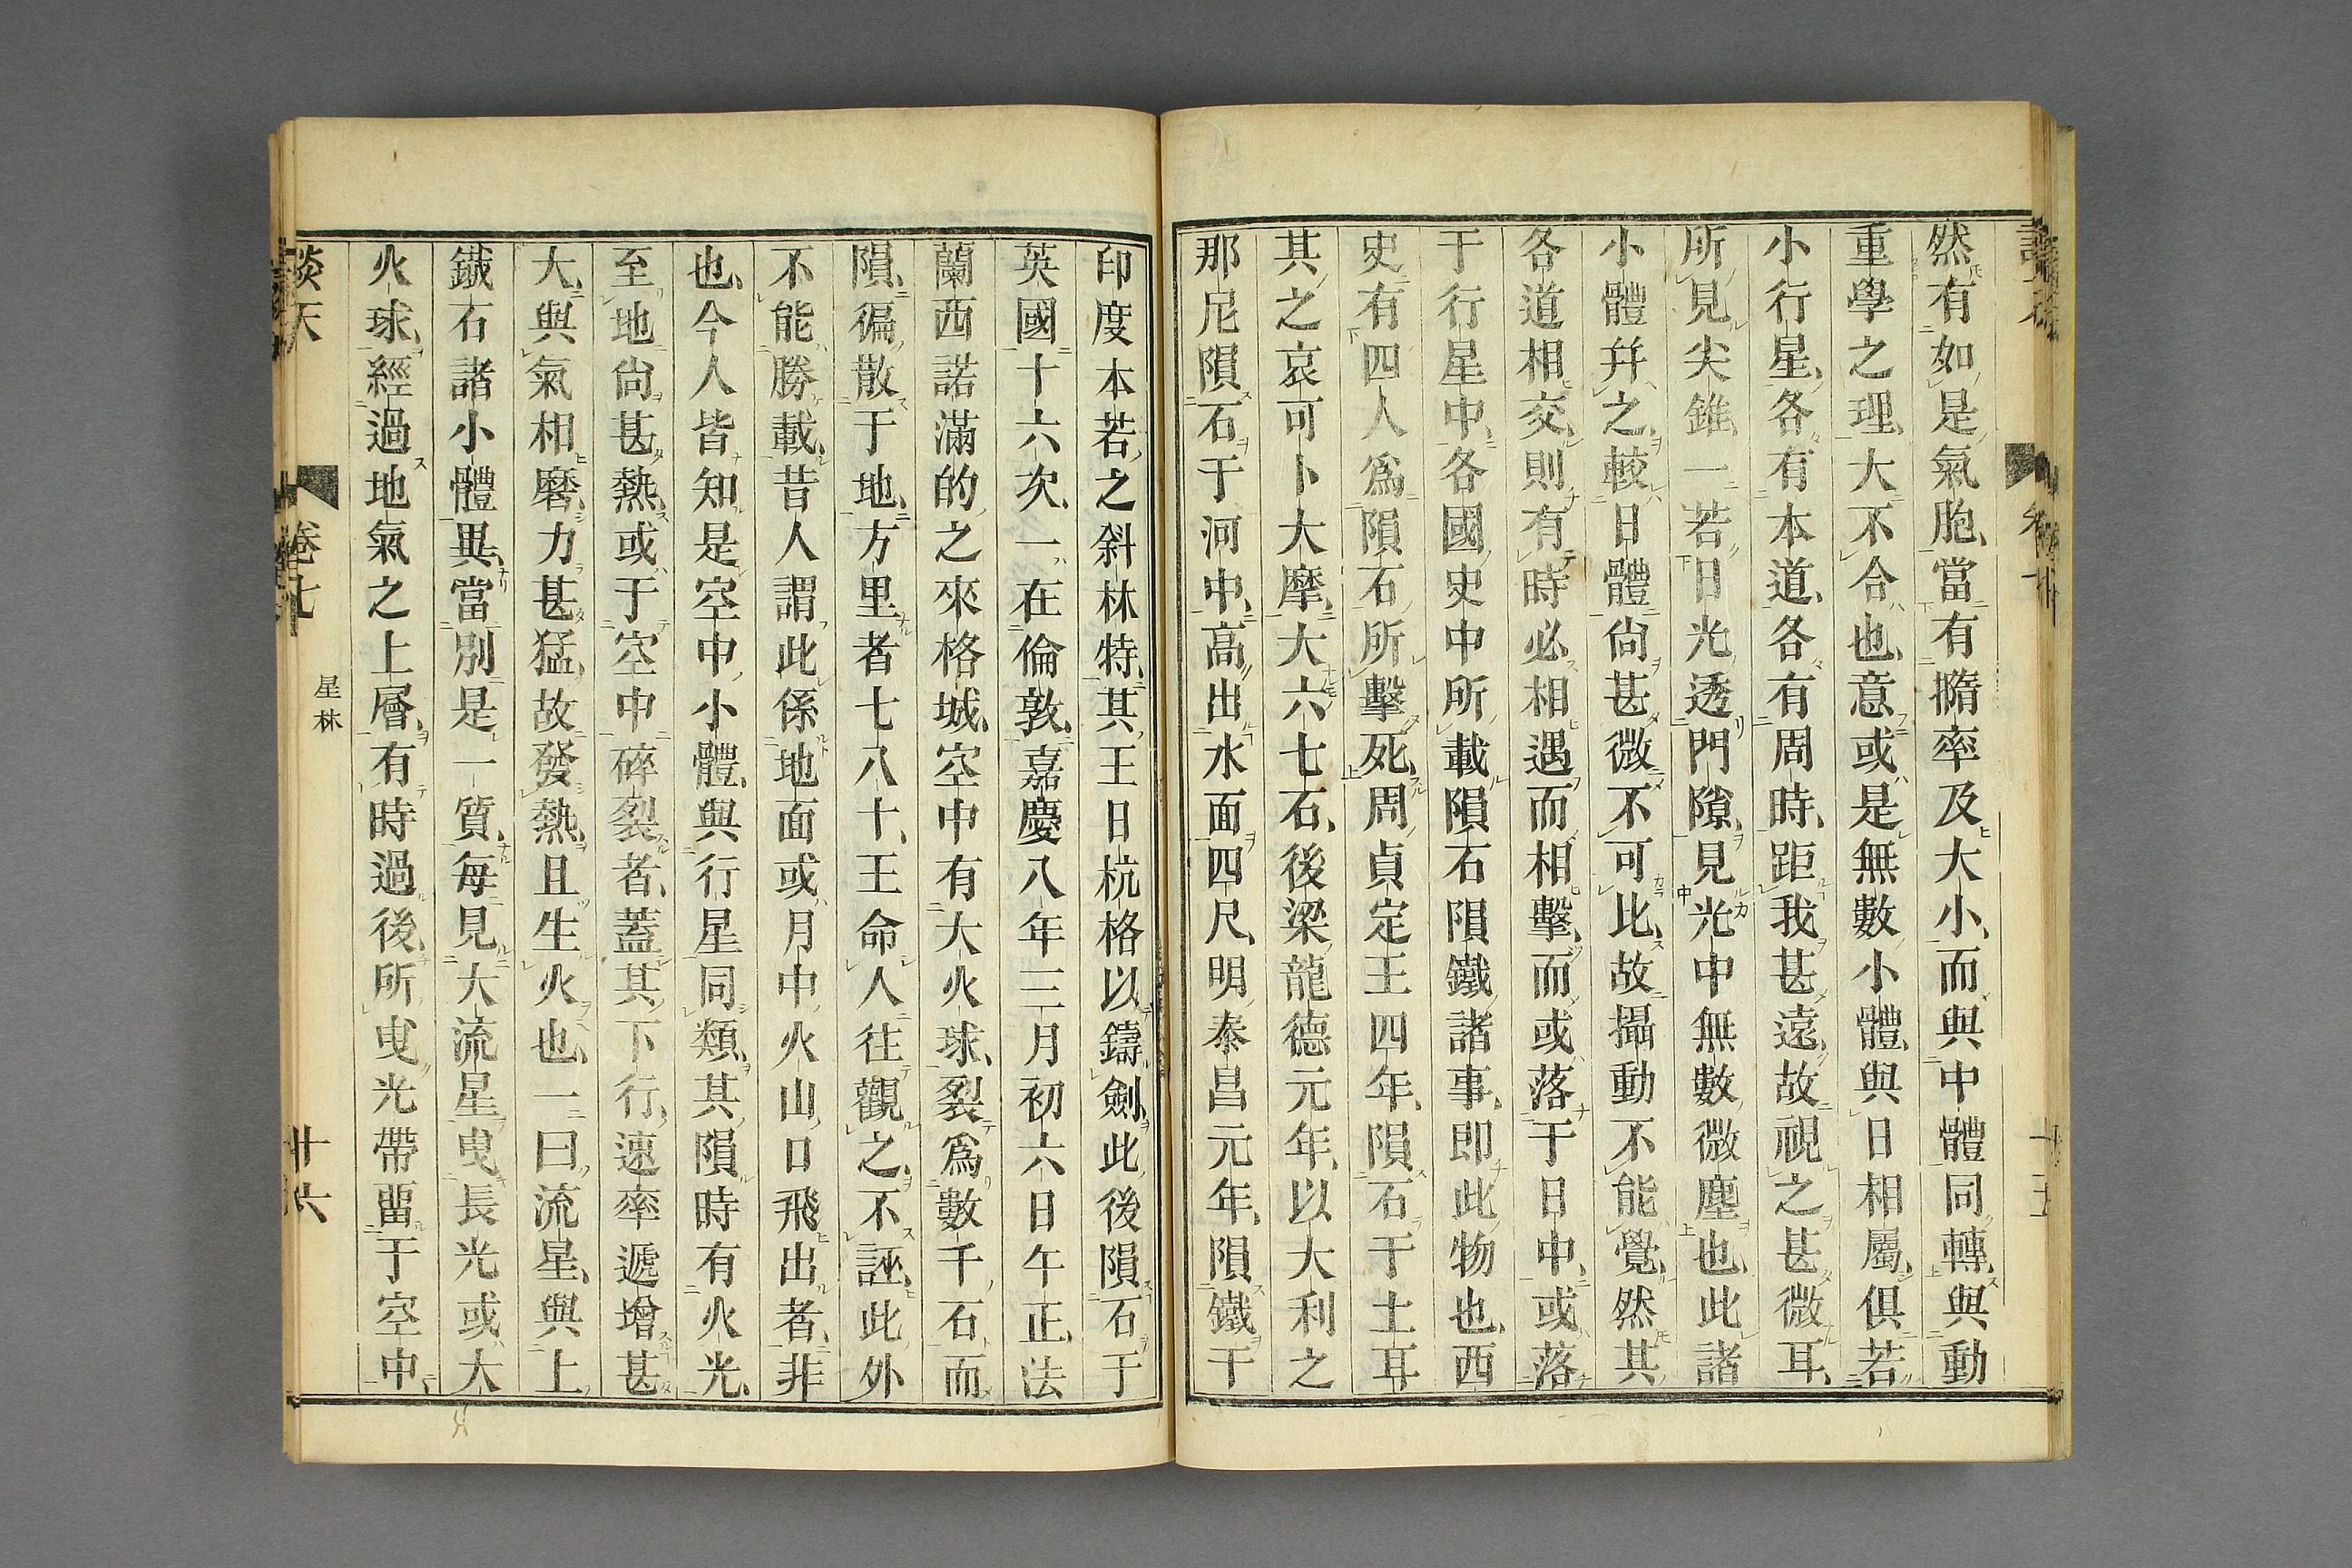 然有如是氣胞、當有撱率及大小、而與中體同轉、與動
重學之理、大不合也、意或是無數小體、與日相屬、俱若
小行星、各有本道、各有周時、距我甚遠、故視之甚微耳、
所見尖錐、一若日光透門隙、見光中無數微塵也、此諸
小體幷之、較日體尙甚微、不可比、故攝動不能覺、然其
各道相交、則有時必相遇而相擊、而或落于日中、或落
于行星中、各國史中所載隕石隕鐵諸事、卽此物也、西
史有四人爲隕石所擊死、周貞定王四年、隕石于土耳
其之哀可卜大摩、大六七石、後梁龍德元年、以大利之
那尼隕石于河中、高出水面四尺、明泰昌元年、隕鐵于
印度本若之斜林特、其王日杭格以鑄劍、此後隕石于
英國十六次、一在倫敦、嘉慶八年三月初六日午正、法
蘭西諾滿的之來格城、空中有大火球、裂爲數千石、而
隕、徧散于地、方里者七八十、王命人往觀之、不誣、此外
不能勝載、昔人謂此係地面或月中火山口飛出者、非
也、今人皆知是空中小體、與行星同類、其隕時有火光、
至地尙甚熱、或于空中碎裂者、蓋其下行、速率遞增甚
大、與氣相磨、力甚猛、故發熱、且生火也、一曰、流星、與上
鐵石諸小體異、當別是一質、每見大流星曳長光或大
火球、經過地氣之上層、有時過後、所曳光帶畱于空中、
談天
卷七
星林
十六